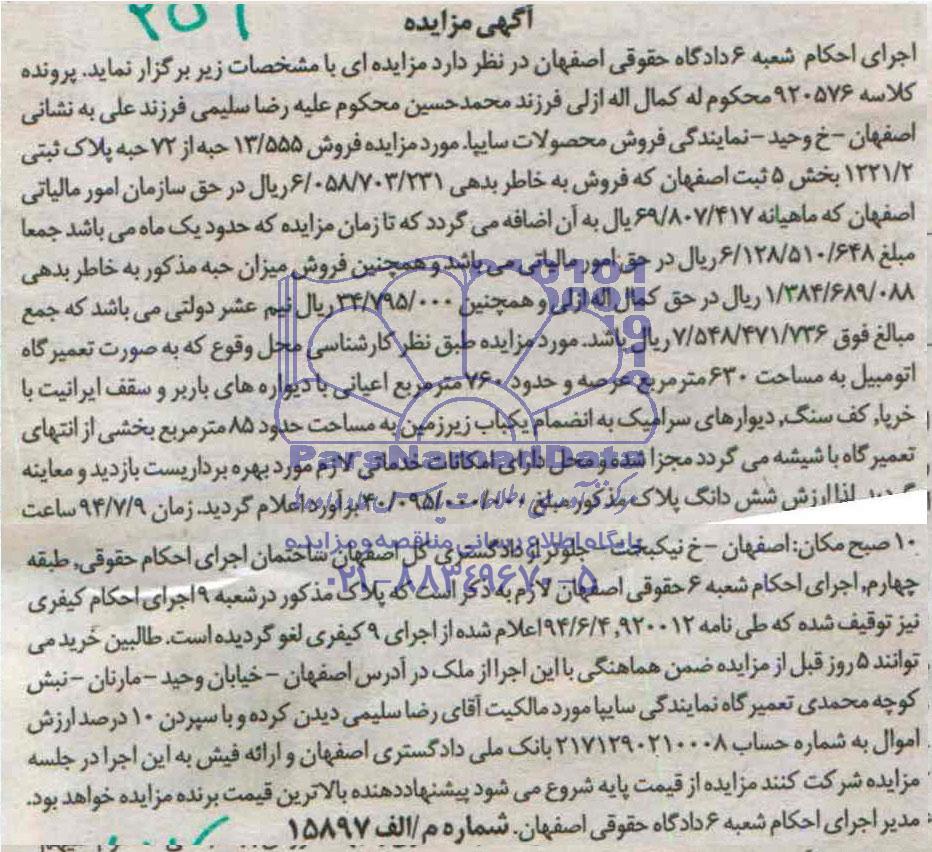 ۲۵۶
آگهی مزایده
اجرای احکام شعبه ۶ دادگاه حقوقی اصفهان در نظر دارد مزایده ای با مشخصات زیر برگزار نماید. پرونده
کلاسه ۹۲۰۵۷۶ محکوم له کمال اله ازلی فرزند محمدحسین محکوم علیه رضا سلیمی فرزند علی به نشانی
اصفهان -خ وحید -نمایندگی فروش محصولات سایپا. مورد مزایده فروش ۱۳/۵۵۵ حبه از ۷۲ حبه پلاک ثبتی
۱۲۲۱/۲ بخش ۵ ثبت اصفهان که فروش به خاطر بدهی ۶/۰۵۸/۷۰۳/۲۳۱ ریال در حق سازمان امور مالیاتی
اصفهان که ماهیانه ۶۹/۸۰۷/۴۱۷ یال به آن اضافه می گردد که تا زمان مزایده که حدود یک ماه می باشد جمعا
مبلغ ۶/۱۲۸/۵۱۰/۶۴۸ ریال در حق امور مالیاتی می باشد و همچنین فروش میزان حبه مذکور به خاطر بدهی
۱/۳۸۴/۶۸۹/۰۸۸ ریال در حق کمال اله ازلی و همچنین ۳۴/۷۹۵/۰۰۰ ریال نیم عشر دولتی می باشد که جمع
مبالغ فوق ۷/۵۴۸/۴۷۱/۷۳۶ ریال باشد. مورد مزایده طبق نظر کارشناسی محل وقوع که به صورت تعمیرگاه
اتومبیل به مساحت ۶۳۰ مترمربع عرصه و حدود ۷۶۰ مترمربع اعیانی با دیواره های باربر و سقف ایرانیت با
خرپا, کف سنگ, دیوارهای سرامیک به انضمام یکباب زیرزمین به مساحت حدود ۸۵ مترمربع بخشی از انتهای
تعمیرگاه با شیشه می گردد مجزا شده و محل دارای امکانات خدماتی لازم مورد بهره برداریست بازدید و معاینه
گردید. لذا ارزش شش دانگ پلاک مذکور مبلغ ۴۰/۰۹۵/۰۰۰/۰۰۰ برآورد اعلام گردید. زمان ۹۴/۷/۹ ساعت
۱۰ صبح مکان: اصفهان -خ نیکبخت - جلوتر از دادگستری کل اصفهان ساختمان اجرای احکام حقوقی, طبقه
چهارم, اجرای احکام شعبه ۶ حقوقی اصفهان لازم به ذکر است که پلاک مذکور در شعبه ۹ اجرای احکام کیفری
نیز توقیف شده که طی نامه ۹۲۰۰۱۲, ۹۴/۶/۴ اعلام شده از اجرای ۹ کیفری لغو گردیده است. طالبین خرید می
توانند ۵ روز قبل از مزایده ضمن هماهنگی با این اجرا از ملک در آدرس اصفهان -خیابان وحید -مارنان -نبش
کوچه محمدی تعمیرگاه نمایندگی سایپا مورد مالکیت آقای رضا سلیمی دیدن کرده و با سپردن ۱۰ درصد ارزش
اموال به شماره حساب ۲۱۷۱۲۹۰۲۱۰۰۰۸ بانک ملی دادگستری اصفهان و ارائه فیش به این اجرا در جلسه
مزایده شرکت کنند مزایده از قیمت پایه شروع می شود پیشنهاددهنده بالاترین قیمت برنده مزایده خواهد بود.
مدیر اجرای احکام شعبه ۶ دادگاه حقوقی اصفهان. شماره م/الف ۱۵۸۹۷
ParsNamadData
پایگاه اطلاع رسانی مناقصه و مزایده
۰۲۱-۸۸۳۴۹۶۷۰-۵